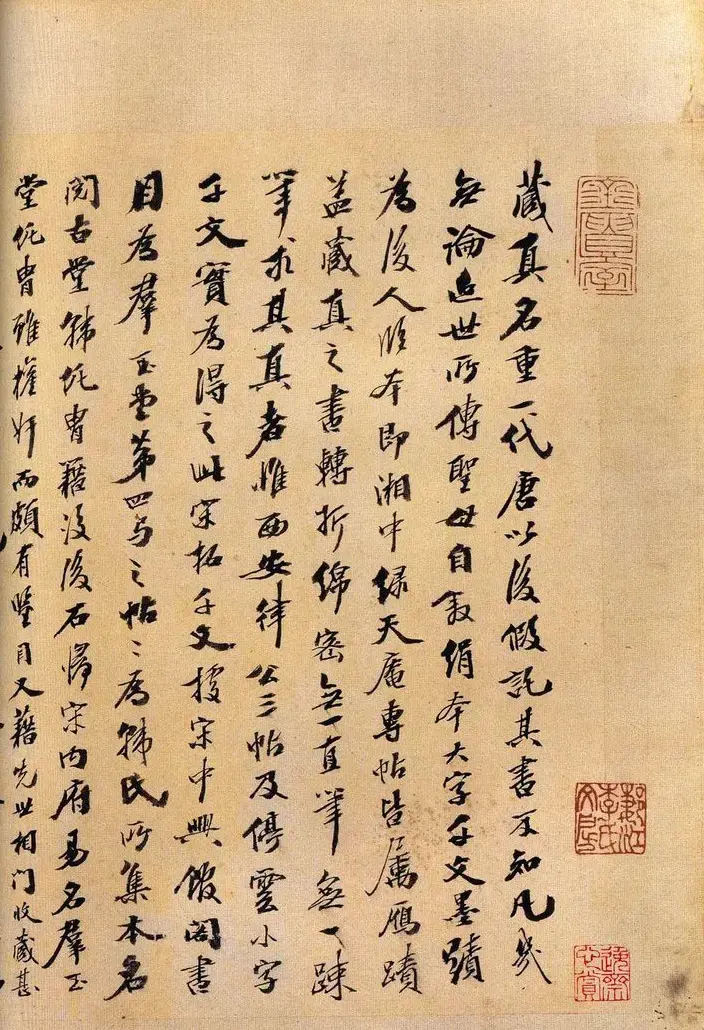 藏真名重一代唐以後假託其書不知凡幾
無論近世所傳聖母自敘絹本大字千文墨蹟
為後人臨本即湘中綠天庵專帖皆屬鴈蹟
蓋藏真之書轉折綿密無一直筆無一疎
筆求其真者惟西安律公三帖及停雲小字
千文實為得之此宋拓千文按宋中興館閣書
目為羣玉堂第四号之帖〻為韓氏所集本名
閱古堂韓侂冑籍沒後石歸宋內府易名羣玉
堂侂冑雖權奸而頗有鑒目又藉先世相門收藏甚